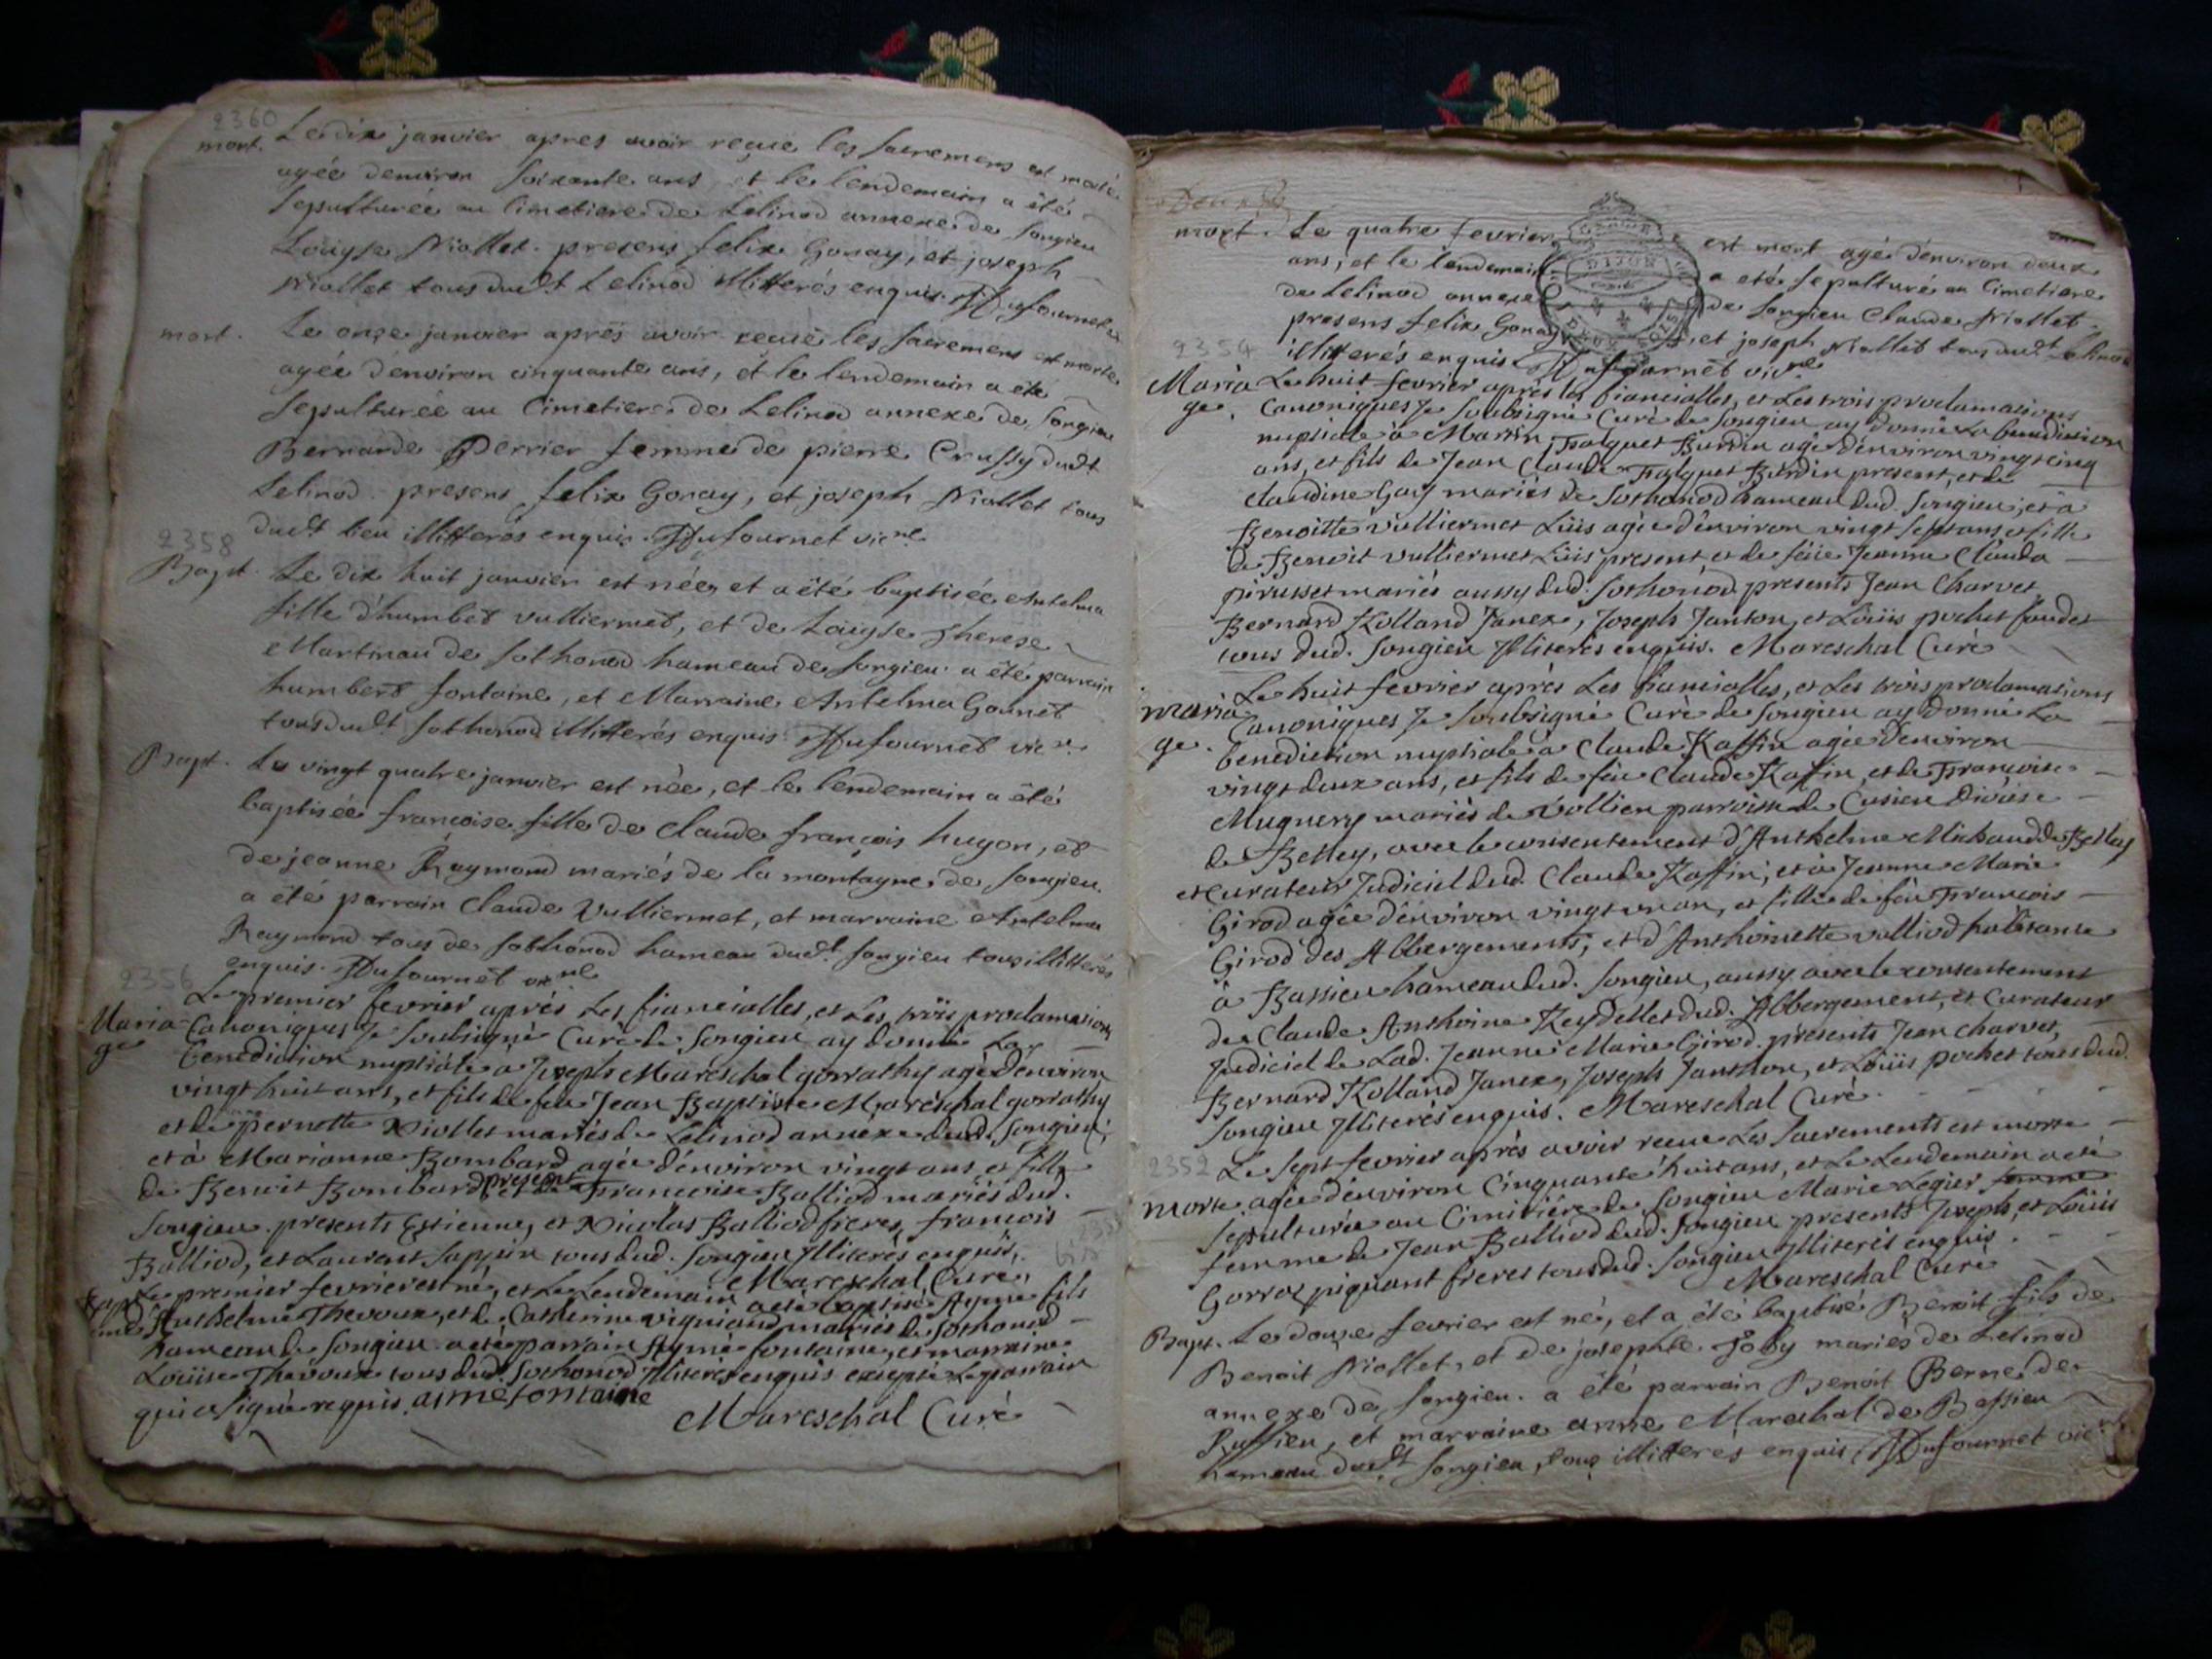 2360
mort. Le dix janvier apres avoir reçue les sacremens est morte
agée denviron soixante ans, et le lendemain a été
sepulturée au Cimetiere de Lelinod annexe de songieu
Louyse Niollet. presens felix Gonay, et joseph
Niollet tous dudt Lelinod illitterés enquis. Dufournet
mort. Le onze janvier aprés avoir recue les sacremens est morte
agée d'environ cinquante ans, et le lendemain a été
sepulturée au Cimetiere de Lelinod annexe de songieu
Bernarde Perrier femme de pierre Crussy dudt
Lelinod. presens felix Gonay, et joseph Niollet tous
dudt lieu illitterés enquis. Dufournet vicre
2358
Bapt. Le dix huit janvier est née, et a été baptisée Antelma
fille d'humbet vulliermet, et de Loüyse Therese
Martinau de sothonod hameau de songieu. a été parrain
humbert fontaine, et Marraine Antelma Gonnet
tous dudt sothonod illitterés enquis. Dufournet vicre
Bapt. Le vingt quatre janvier est née, et le lendemain a été
baptisée françoise fille de claude françois hugon, et
de jeanne Raymond mariés de la montagne de songieu.
a été parrain Claude Vulliermet, et marraine Antelma
Raymond tous de sothonod hameau dudt songieu tous illitterés
enquis. Dufournet vicre
2356
Maria Le premier fevrier aprés Les fiancialles, et Les trois proclamasions
ge Canoniques Je soubsigné Curé de songieu ay donné La
benediction nuptiale a Joseph Mareschal gorrathy agé d'environ
vingt huit ans, et fils de feu Jean Baptiste Mareschal gorrathy
et de pernette Niollet mariés de Lelinod annexe dud. songieu,
et à Marianne Bombard agée d'environ vingt ans, et fille
de Benoit Bombard present et de Francoise Balliod mariés dud.
songieu. presents Estienne, et Nicolas Balliod freres, francois
Balliod, et Laurent sappin tous dud. songieu Illiterés enquis.
Mareschal Curé
Bapt Le premier fevrier est né, et Le Lendemain a été baptisé Aymé fils
d'Anthelme Thevoux, et de Catherine vigniaud mariés de sothonod
hameau de songieu a eté parrain Aymé fontaine, et marraine
Loüise Thevoux tous dud. sothonod Illiterés enquis excepté Le parrain
qui a signé requis. aime fontaine
Mareschal Curé
mort. Le quatre fevrier est mort agé d'environ deux
ans, et le lendemain a eté sepulturé au Cimetiere
de Lelinod annexe de songieu Claude Niollet
presens felix Gonay, et joseph Niollet tous dudt Lelinod
2354
illitterés enquis. Dufournet vicre
Maria Le huit fevrier aprés les fiancialles, et Les trois proclamasions
ge. Canoniques Je soubsigné Curé de songieu ay donné La benediction
nuptiale à Martin Falquet Burdin agé d'environ vingt cinq
ans, et fils de Jean Claude Falquet Burdin present, et de
claudine Gay mariés de sothonod hameau dud. songieu; et a
Benoitte vulliermet Lüis agée d'environ vingt sept ans et fille
de Benoit vulliermet Lüis present, et de feüe Jeanne Clauda
pirusset mariés aussy dud. sothonod presents Jean Charvet
Bernard Rolland Janex, Joseph Janton, et Loüis pochet faudet
tous dud. songieu Illiterés enquis. Mareschal Curé
maria Le huit fevrier après Les fiancialles, et Les trois proclamasions
ge. Canoniques Je soubsigné Curé de songieu ay donné La
benediction nuptiale a Claude Raffin agée d'environ
vingt deux ans, et fils de feu Claude Raffin, et de Françoise
Mugnery mariés de vollien parroisse de Cusieu Diocese
de Belley, avec le consentement d'Anthelme Michaud de Belley
et curateur Judiciel dud. Claude Raffin; et à Jeanne Marie
Girod agée d'environ vingt un an, et fille de feu François
Girod des Abbergements, et d'Anthoinette volliod habitante
à Bassieu hameau dud. songieu, aussy avec le consentement
de Claude Anthoine Reydellet dud. Abbergement, et Curateur
Judiciel de Lad. Jeanne Marie Girod. presents Jean charvet,
Bernard Rolland Janex, Joseph Janthon, et Loüis pochet tous dud.
songieu Illiterés enquis. Mareschal Curé.
2352 Le sept fevrier aprés avoir receue Les sacrements est morte
morte. agée d'environ Cinquante huit ans, et Le Lendemain a eté
sepulturée au Cimitière de songieu Marie Legier femme
femme de Jean Balliod dud. songieu presents Joseph, et Loüis
Gorraz piquant freres tous dud. songieu Illiterés enquis.
Mareschal Curé
Bapt. Le douze fevrier est né, et a été baptisé Benoit fils de
Benoit Niollet, et de josephte Joly mariés de Lelinod
annexe de songieu. a été parrain Benoit Berne de
Ruffieu, et marraine anne Mareschal de Bassieu
hameau dudt songieu, tous illitterés enquis. Dufournet vic